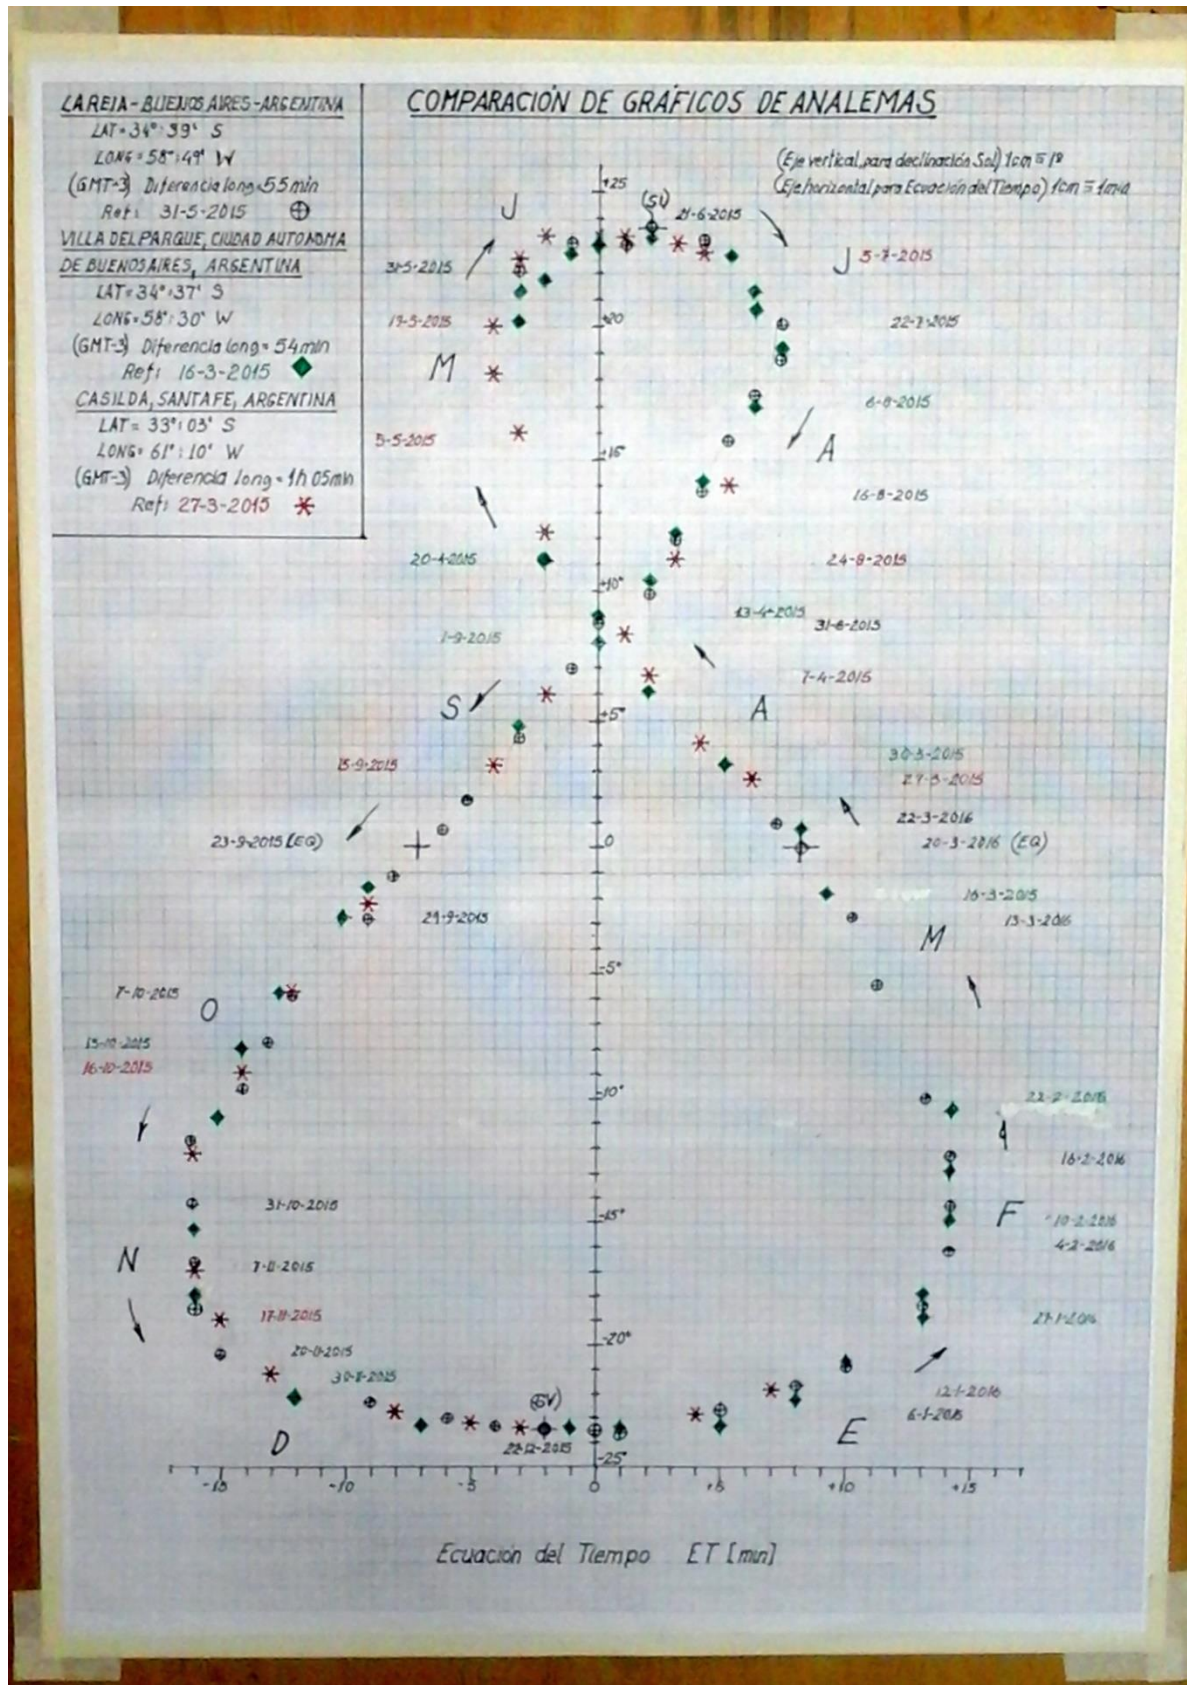 COMPARACIÓN DE GRÁFICOS DE ANALEMAS
LA REJA-BUENOS AIRES-ARGENTINA
LAT=34°:39' S
LONG=58°:49' W
(GMT-3) Diferencia long=55min
Ref: 31-5-2015 ⊕
VILLA DEL PARQUE, CIUDAD AUTONOMA
DE BUENOS AIRES, ARGENTINA
LAT=34°:37' S
LONG=58°:30' W
(GMT-3) Diferencia long=54min
Ref: 16-3-2015
CASILDA, SANTA FE, ARGENTINA
LAT=33°:03' S
LONG=61°:10' W
(GMT-3) Diferencia long=1h 05min
Ref: 27-3-2015
(Eje vertical, para declinación Sol) 1cm≡1°
(Eje horizontal para Ecuación del Tiempo) 1cm≡1min
+25
(SI)
J 21-6-2015
31-5-2015
J 5-7-2015
19-5-2015 +20 22-7-2015
M
6-8-2015
5-5-2015 +15° A
16-8-2015
20-4-2015 24-8-2015
+10°
13-4-2015
1-9-2015 31-8-2015
7-4-2015
S +5° A
15-9-2015 30-3-2015
27-3-2015
22-3-2016
23-9-2015 (EQ) 0 20-3-2016 (EQ)
16-3-2015
29-9-2015 13-3-2016
M
-5°
7-10-2015
O
15-10-2015
16-10-2015
-10° 22-2-2016
16-2-2016
31-10-2015 -15° F 10-2-2016
4-2-2016
N 7-11-2015
17-11-2015 27-1-2016
20-11-2015 -20°
30-11-2015
12-1-2016
6-1-2016
D E
22-12-2015
-25°
-15 -10 -5 0 +5 +10 +15
Ecuación del Tiempo ET [min]